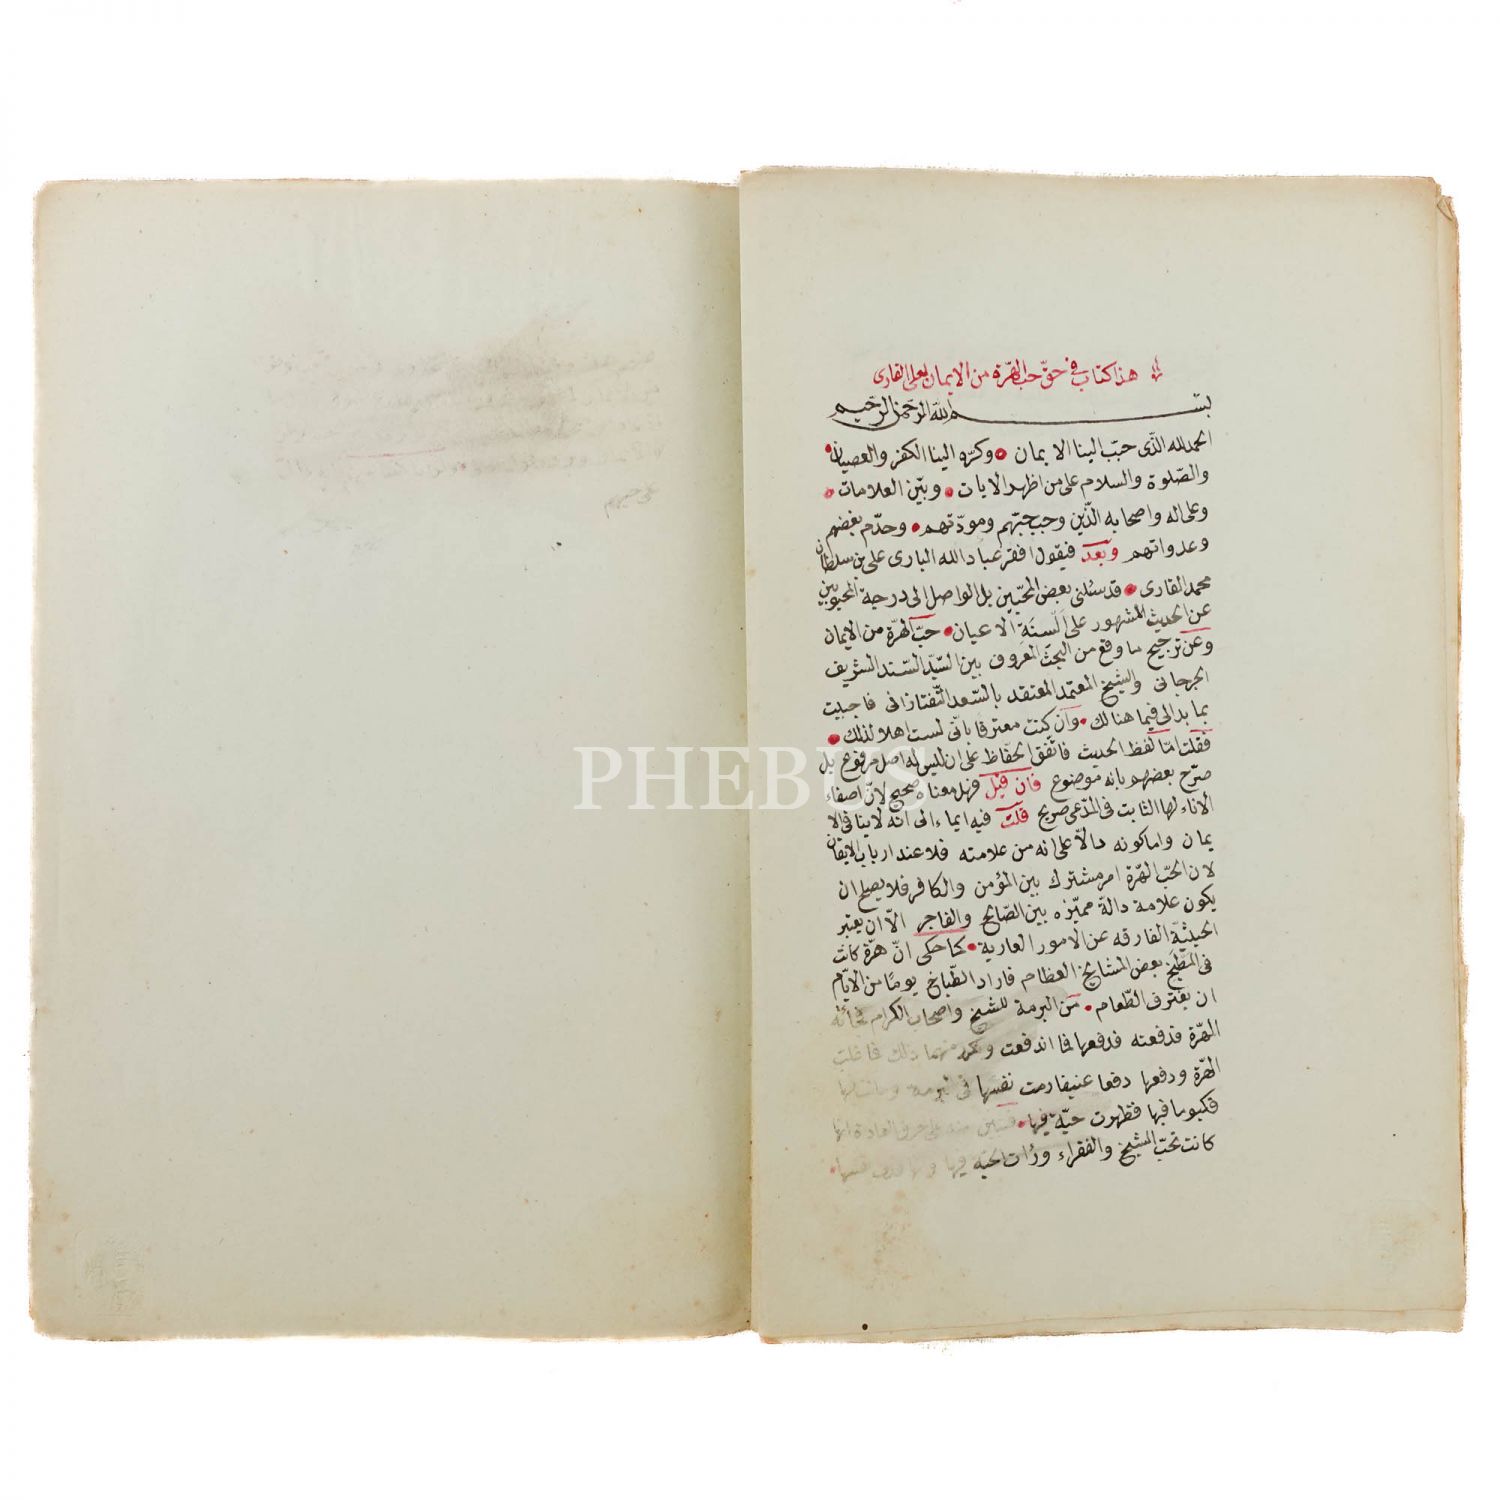 هذا كتاب في حقّ حب الهرّة من الايمان لعلى القارى
بسم الله الرحمن الرحيم
الحمد لله الذّى حبّب الينا الايمان • وكرّه الينا الكفر والعصيان •
والصّلوة والسلام على من اظهر الايات • وبيّن العلامات •
وعلى اله واصحابه الذّين وجب حبّهم ومودّتهم • وحرّم بغضهم
وعدواتهم وبعد فيقول افقر عباد الله البارى على بن سلطان
محمد القارى • قد سئلنى بعض المحبّين بل الواصل الى درجة المحبوبين
عن الحديث المشهور على السنة الاعيان • حبّ الهرّة من الايمان
وعن ترجيح ما وقع من البحث المعروف بين السيّد السّند الشريف
الجرجانى والشيخ المعتمد المعتقد بالسّعد التّفتازانى فاجبت
بما بدالى فيما هنالك • وان كنت معترفا بانّى لست اهلا لذلك •
فقلت امّا لفظ الحديث فاتّفق الحفاظ على ان ليس له اصل مرفوع بل
صرّح بعضهم بانه موضوع فان قيل فهل معناه صحيح لانّ اصفاء
الاناء لها الثابت فى المدّعى صريح قلت فيه ايماء الى انّه لاينافى الا
يمان واما كونه دالّا على انه من علامته فلا عند ارباب الايقان
لان الحبّ الهرّة امر مشترك بين المؤمن والكافر فلا يصلح ان
يكون علامة دالة مميّزه بين الصّالح والفاجر الّا ان يعتبر
الحيثيّة الفارقه عن الامور العارية • كما حكى انّ هرّة كانت
فى المطبخ بعض المشايخ العظام فاراد الطّباخ يوما من الايّام
ان يغترف الطّعام • من البرمة للشيخ واصحاب الكرام فجائه
الهرّة فدفعته فدفعها فما اندفعت وتكرر منهما ذلك فما قلبت
الهرّة ودفعها دفعا عنيفا رمت نفسها فى برمة وماتت لها
فكبوما فيها فظهرت حيّة فيها •
كانت تحبّ الشيخ والفقراء ورأت الحية فيها
PHEBUS